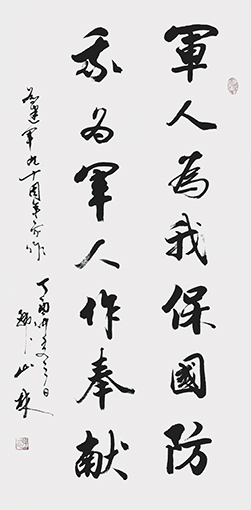 軍人為我保國防
我为軍人作奉献
为建軍九十周年而作
丁酉仲夏